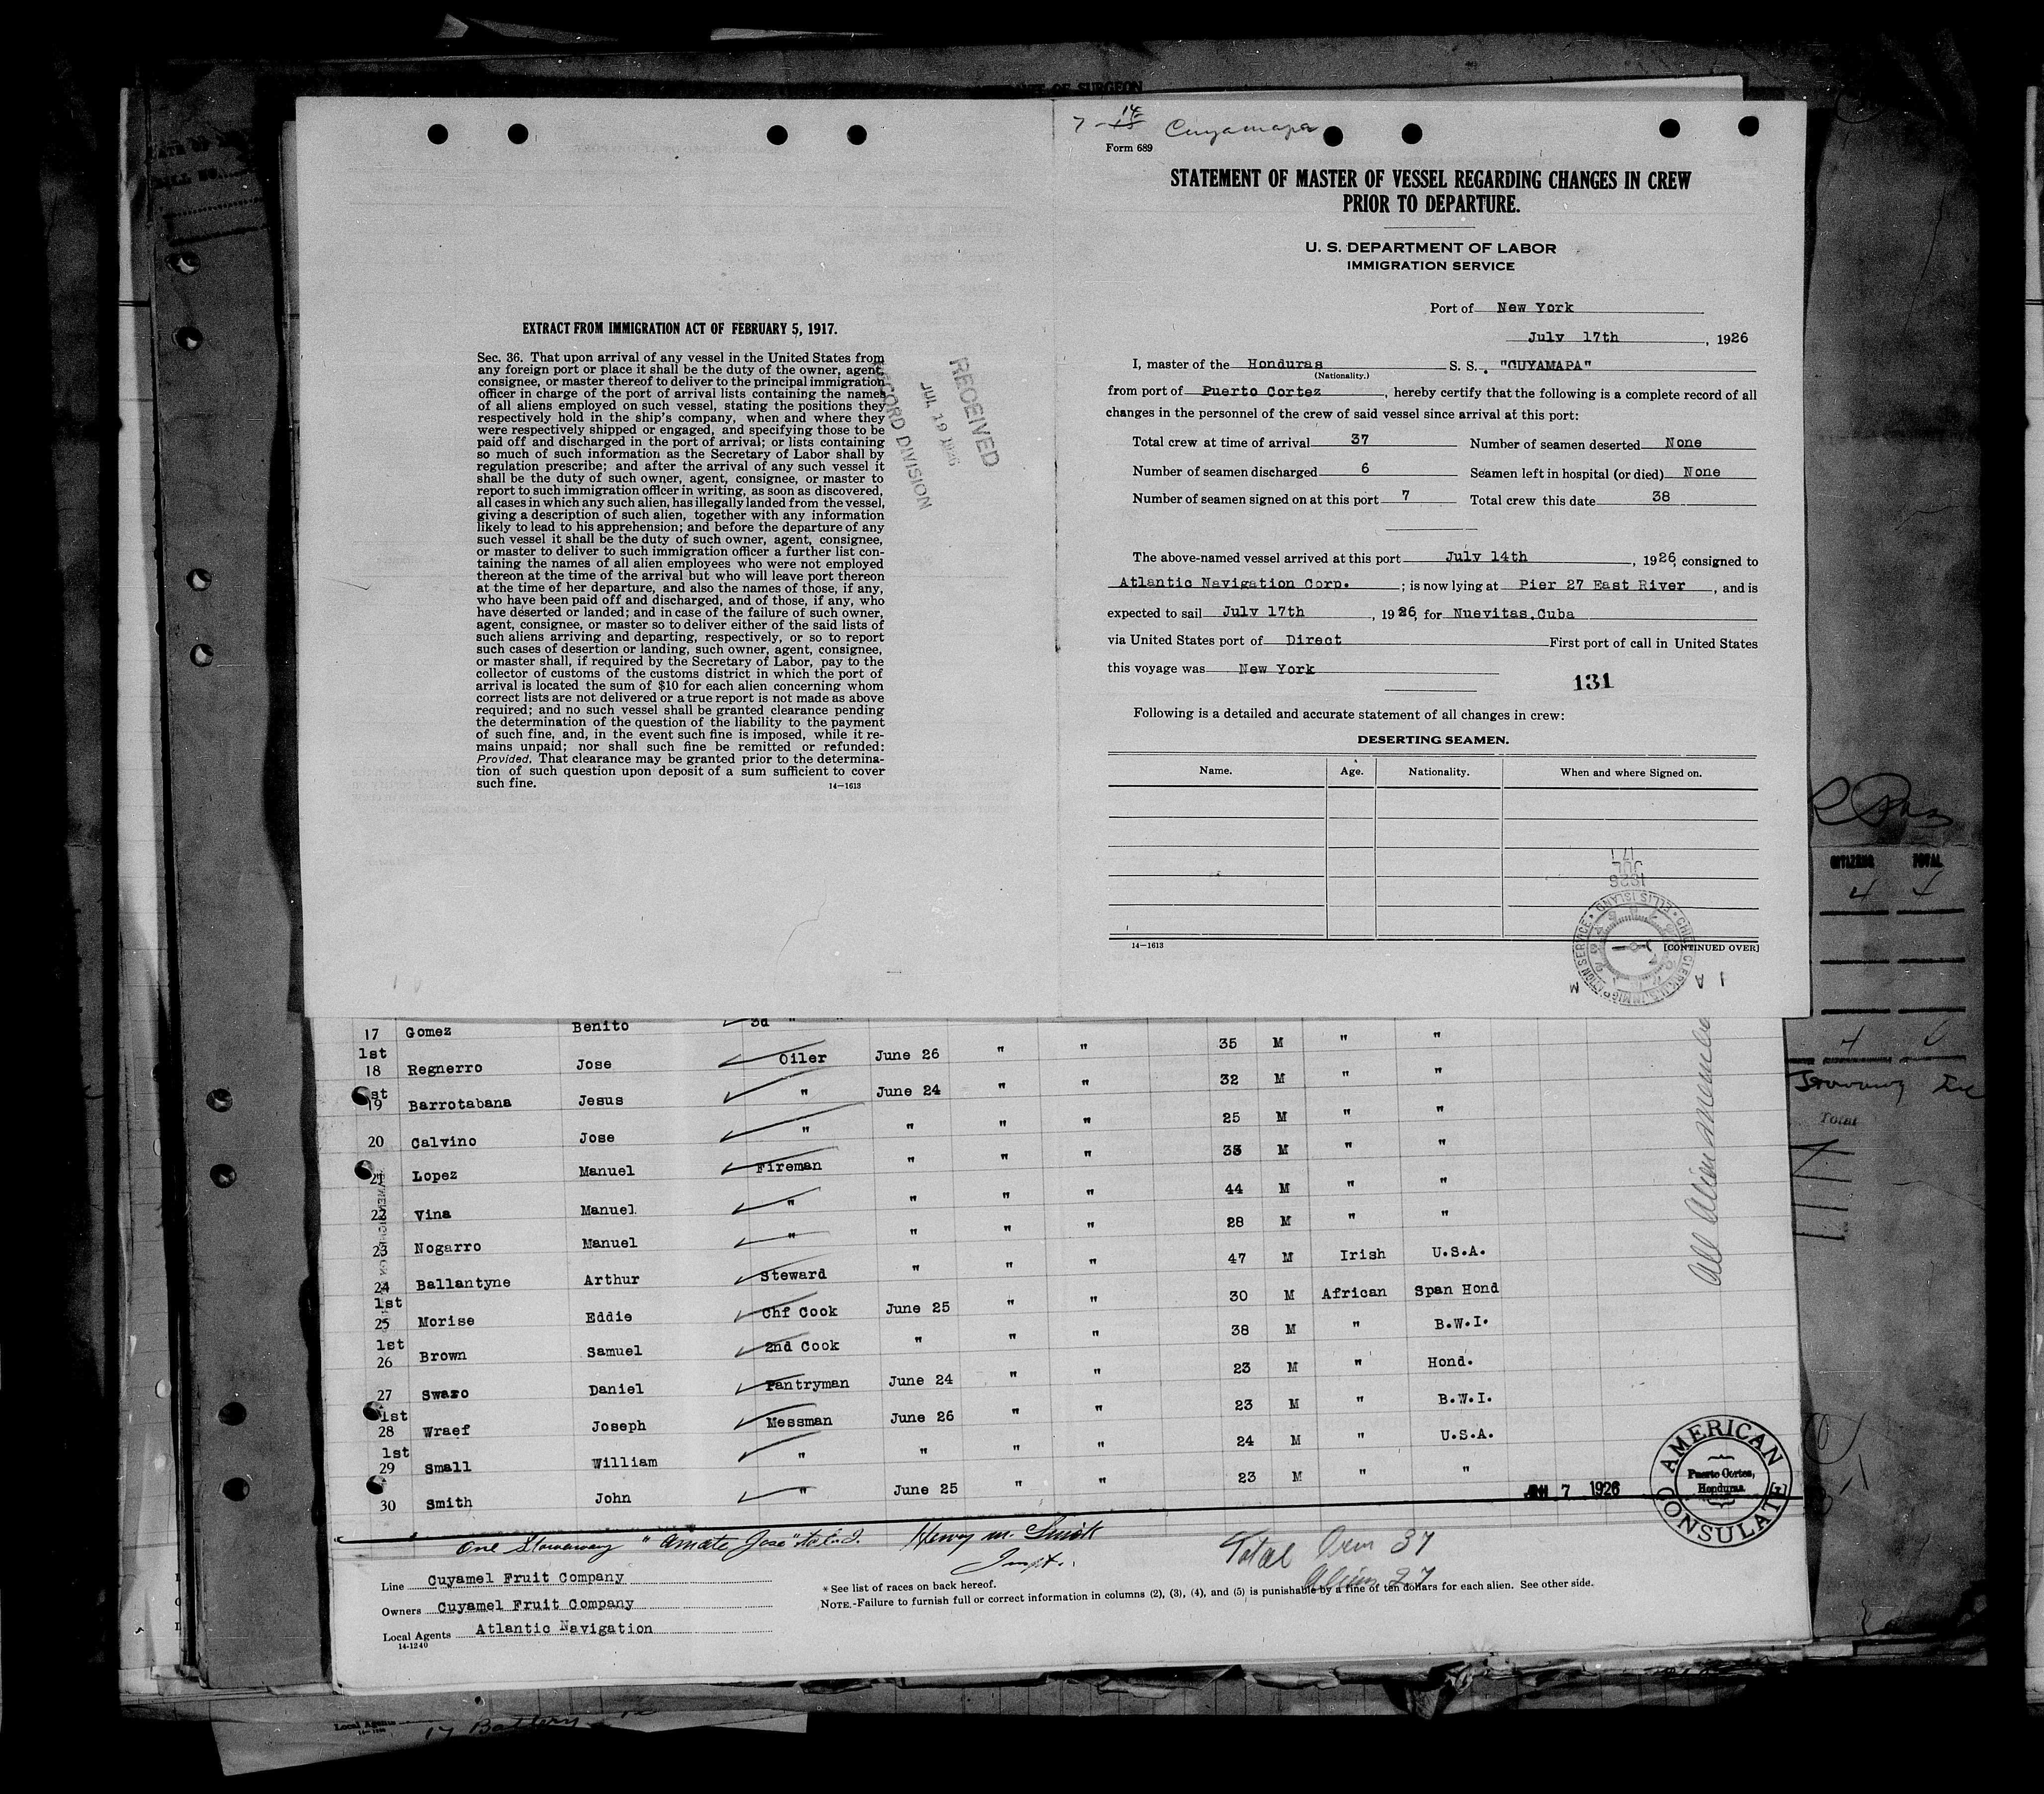 OF SURGEON
7 - 14 Cuyamapa
Form 689
STATEMENT OF MASTER OF VESSEL REGARDING CHANGES IN CREW
PRIOR TO DEPARTURE.
U. S. DEPARTMENT OF LABOR
IMMIGRATION SERVICE
Port of New York
July 17th, 1926
I, master of the Honduras S. S. "CUYAMAPA"
(Nationality.)
from port of Puerto Cortez, hereby certify that the following is a complete record of all
changes in the personnel of the crew of said vessel since arrival at this port:
Total crew at time of arrival 37 Number of seamen deserted None
Number of seamen discharged 6 Seamen left in hospital (or died) None
Number of seamen signed on at this port 7 Total crew this date 38
The above-named vessel arrived at this port July 14th, 1926, consigned to
Atlantic Navigation Corp.; is now lying at Pier 27 East River, and is
expected to sail July 17th, 1926, for Nuevitas,Cuba
via United States port of Direct First port of call in United States
this voyage was New York
131
Following is a detailed and accurate statement of all changes in crew:
DESERTING SEAMEN.
Name. Age. Nationality. When and where Signed on.
14—1613 [CONTINUED OVER]
1926
JUL
17
CHIEF CLERK, U.S. IMMIGRATION SERVICE • ELLIS ISLAND
EXTRACT FROM IMMIGRATION ACT OF FEBRUARY 5, 1917.
Sec. 36. That upon arrival of any vessel in the United States from
any foreign port or place it shall be the duty of the owner, agent,
consignee, or master thereof to deliver to the principal immigration
officer in charge of the port of arrival lists containing the names
of all aliens employed on such vessel, stating the positions they
respectively hold in the ship's company, when and where they
were respectively shipped or engaged, and specifying those to be
paid off and discharged in the port of arrival; or lists containing
so much of such information as the Secretary of Labor shall by
regulation prescribe; and after the arrival of any such vessel it
shall be the duty of such owner, agent, consignee, or master to
report to such immigration officer in writing, as soon as discovered,
all cases in which any such alien, has illegally landed from the vessel,
giving a description of such alien, together with any information
likely to lead to his apprehension; and before the departure of any
such vessel it shall be the duty of such owner, agent, consignee,
or master to deliver to such immigration officer a further list con-
taining the names of all alien employees who were not employed
thereon at the time of the arrival but who will leave port thereon
at the time of her departure, and also the names of those, if any,
who have been paid off and discharged, and of those, if any, who
have deserted or landed; and in case of the failure of such owner,
agent, consignee, or master so to deliver either of the said lists of
such aliens arriving and departing, respectively, or so to report
such cases of desertion or landing, such owner, agent, consignee,
or master shall, if required by the Secretary of Labor, pay to the
collector of customs of the customs district in which the port of
arrival is located the sum of $10 for each alien concerning whom
correct lists are not delivered or a true report is not made as above
required; and no such vessel shall be granted clearance pending
the determination of the question of the liability to the payment
of such fine, and, in the event such fine is imposed, while it re-
mains unpaid; nor shall such fine be remitted or refunded:
Provided, That clearance may be granted prior to the determina-
tion of such question upon deposit of a sum sufficient to cover
such fine.
14—1613
RECEIVED
JUL 19 1926
RECORD DIVISION
17 Gomez Benito 3d "
1st
18 Regnerro Jose Oiler June 26 " " 35 M " "
1st
19 Barrotabana Jesus " June 24 " " 32 M " "
20 Calvino Jose " " " " 25 M " "
21 Lopez Manuel Fireman " " " 35 M " "
22 Vina Manuel " " " " 44 M " "
23 Nogarro Manuel " " " " 28 M " "
24 Ballantyne Arthur Steward " " " 47 M Irish U.S.A.
1st
25 Morise Eddie Chf Cook June 25 " " 30 M African Span Hond
1st
26 Brown Samuel 2nd Cook " " " 38 M " B.W.I.
27 Swaso Daniel Pantryman June 24 " " 23 M " Hond.
1st
28 Wraef Joseph Messman June 26 " " 23 M " B.W.I.
1st
29 Small William " " " " 24 M " U.S.A.
30 Smith John " June 25 " " 23 M " "
7 1926
AMERICAN CONSULATE
Puerto Cortes,
Honduras
One Stowaway "Amate Jose"
Henry M. Smith
Inspt.
Total Crew 37
Alien 27
Line Cuyamel Fruit Company
Owners Cuyamel Fruit Company
Local Agents Atlantic Navigation
14-1240
* See list of races on back hereof.
NOTE.-Failure to furnish full or correct information in columns (2), (3), (4), and (5) is punishable by a fine of ten dollars for each alien. See other side.
CITIZENS TOTAL
4
Total
Local Agents
17 Battery